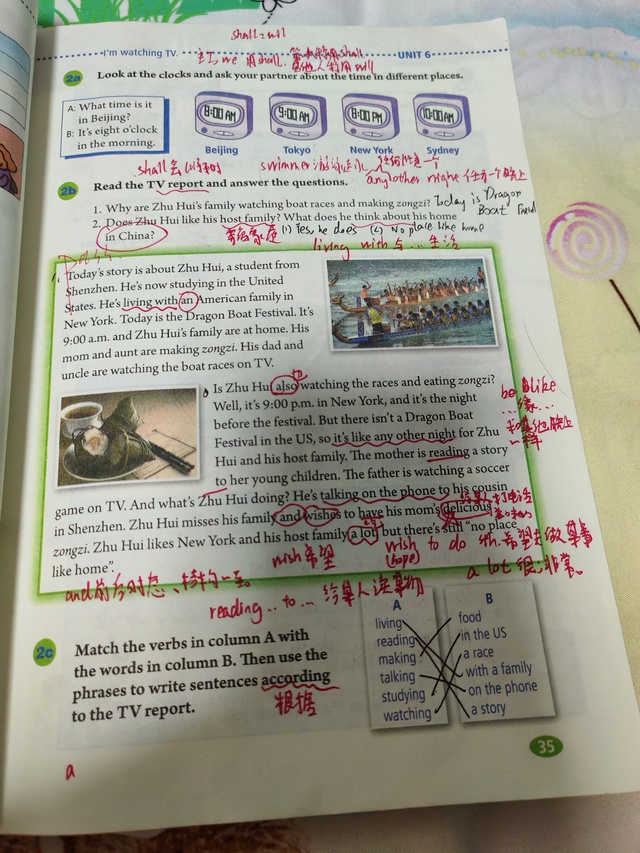 shall=will
I'm watching TV.
UNIT 6
2a
Look at the clocks and ask your partner about the time in different places.
A: What time is it
in Beijing?
B: It's eight o'clock
in the morning.
8:00 AM
9:00 AM
8:00 PM
10:00 AM
Beijing
Tokyo
New York
Sydney
any other night 任何一个晚上
2b
Read the TV report and answer the questions.
1. Why are Zhu Hui's family watching boat races and making zongzi? Today is Dragon
Boat
2. Does Zhu Hui like his host family? What does he think about his home
in China?
寄宿家庭 (1) Yes, he does (2) No place like home
living with 与...生活
Today's story is about Zhu Hui, a student from
Shenzhen. He's now studying in the United
States. He's living with an American family in
New York. Today is the Dragon Boat Festival. It's
9:00 a.m. and Zhu Hui's family are at home. His
mom and aunt are making zongzi. His dad and
uncle are watching the boat races on TV.
Is Zhu Hui also watching the races and eating zongzi?
Well, it's 9:00 p.m. in New York, and it's the night
before the festival. But there isn't a Dragon Boat
Festival in the US, so it's like any other night for Zhu
Hui and his host family. The mother is reading a story
to her young children. The father is watching a soccer
game on TV. And what's Zhu Hui doing? He's talking on the phone to his cousin
in Shenzhen. Zhu Hui misses his family and wishes to have his mom's delicious
zongzi. Zhu Hui likes New York and his host family a lot, but there's still “no place
like home”.
wish 希望
wish to do sth. 希望去做某事
(hope)
a lot 很;非常
reading..to... 给某人读某物
2c
Match the verbs in column A with
the words in column B. Then use the
phrases to write sentences according
to the TV report.
根据
A
living
reading
making
talking
studying
watching
B
food
in the US
a race
with a family
on the phone
a story
35
a